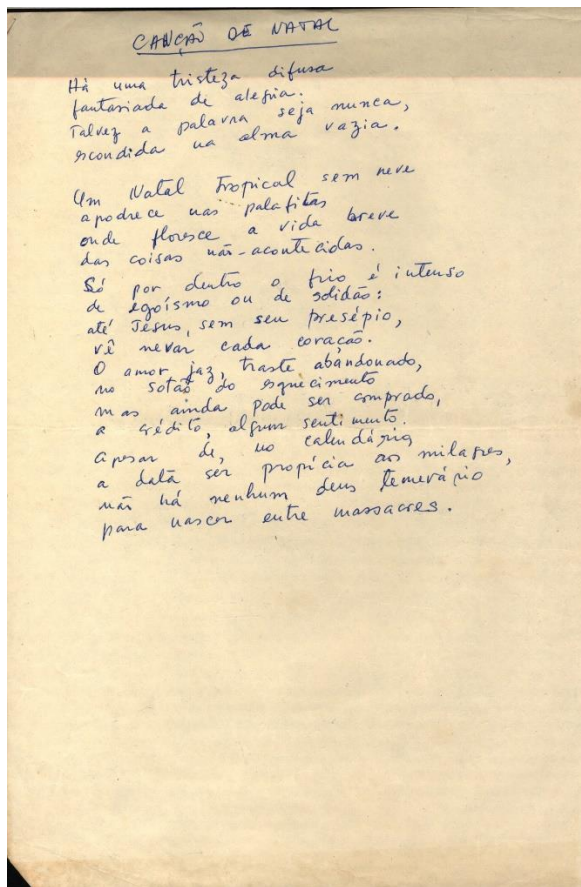 CANÇÃO DE NATAL
Há uma tristeza difusa
fantasiada de alegria.
Talvez a palavra seja nunca,
escondida na alma vazia.
Um Natal Tropical sem neve
apodrece nas palafitas
onde floresce a vida breve
das coisas não-acontecidas.
Só por dentro o frio é intenso
de egoísmo ou de solidão:
até Jesus, sem seu presépio,
vê nevar cada coração.
O amor jaz, traste abandonado,
no sotão do esquecimento
mas ainda pode ser comprado,
a crédito, algum sentimento.
apesar de, no calendário
a data ser propícia aos milagres,
não há nenhum deus temerário
para nascer entre massacres.